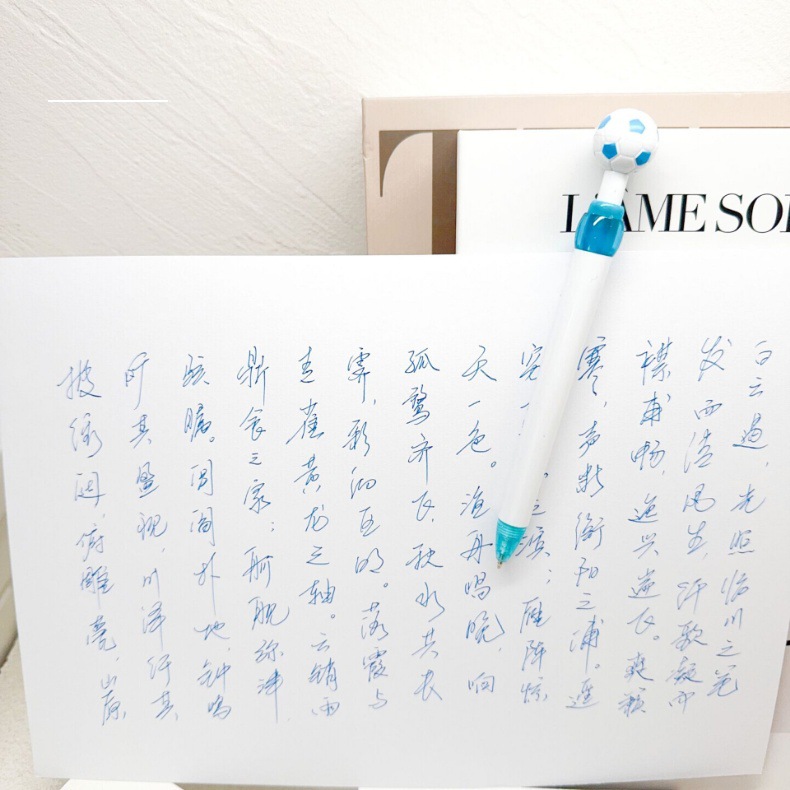 披绣闼,俯雕甍,山原
旷其盈视,川泽纡其
骇瞩。闾阎扑地,钟鸣
鼎食之家;舸舰弥津
青雀黄龙之轴。云销雨
霁,彩彻区明。落霞与
孤鹜齐飞,秋水共长
天一色。渔舟唱晚,响
穷之滨;雁阵惊
寒,声断衡阳之浦。遥
襟甫畅,逸兴遄飞。爽籁
发而清风生,纤歌凝而
白云遏,光照临川之笔
L'ÂME SOI